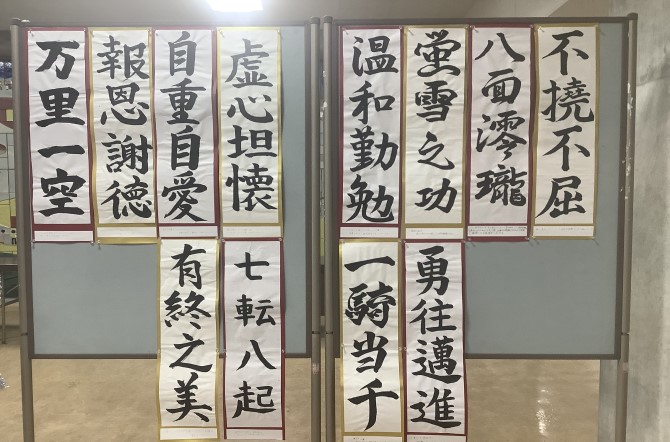 不撓不屈
八面澪瓏
螢雪之功
温和勤勉
勇往邁進
一騎当千
虚心坦懐
自重自愛
報恩謝徳
万里一空
七転八起
有終之美